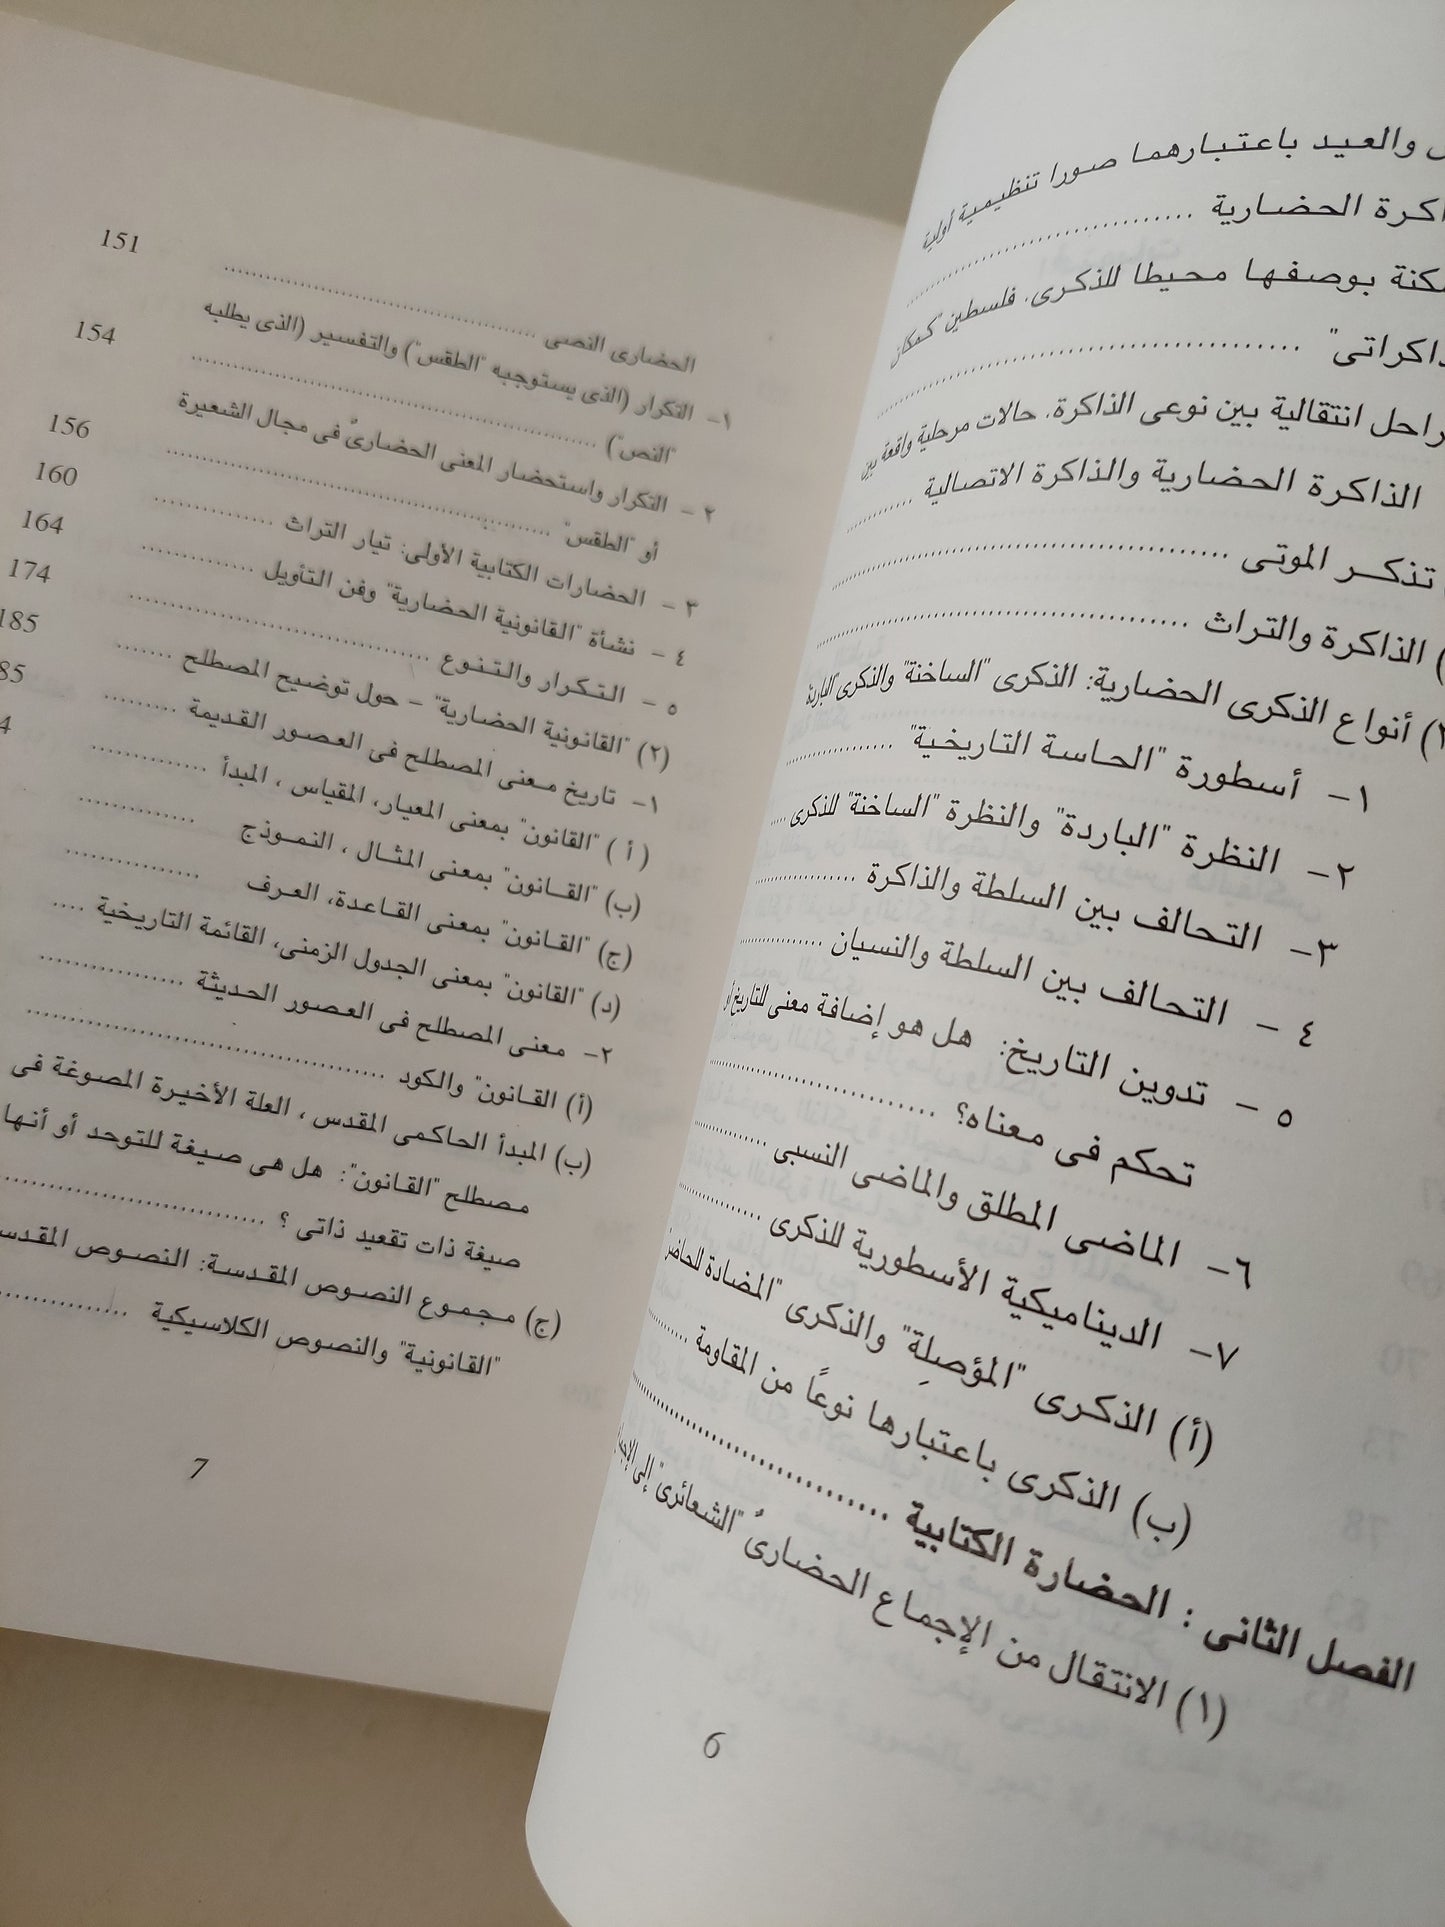 والعيد باعتبارهما صورا تنظيمية أولية
الحضارية ..............................
بوصفها محيطا للذكرى. فلسطين "كمكان
..............................
انتقالية بين نوعى الذاكرة. حالات مرحلية واقعة بين
الذاكرة الحضارية والذاكرة الاتصالية ..........
تذكر الموتى ..............................
) الذاكرة والتراث ..............................
) أنواع الذكرى الحضارية: الذكرى "الساخنة" والذكرى "الباردة
١- أسطورة "الحاسة التاريخية" ..............
٢- النظرة "الباردة" والنظرة "الساخنة" للذكرى .....
٣- التحالف بين السلطة والذاكرة ..............
٤ - التحالف بين السلطة والنسيان ..............
٥ - تدوين التاريخ: هل هو إضافة معنى للتاريخ أو
تحكم فى معناه؟ ..............................
٦- الماضى المطلق والماضى النسبى ..............
٧- الديناميكية الأسطورية للذكرى ..............
(أ) الذكرى "المؤصلِة" والذكرى "المضادة للحاضر
(ب) الذكرى باعتبارها نوعًا من المقاومة ..........
الفصل الثانى : الحضارة الكتابية ..............................
(١) الانتقال من الإجماع الحضارىُ "الشعائرى" إلى
6
الحضارى النصى .............................. 151
١- التكرار (الذى يستوجبه "الطقس") والتفسير (الذى يطلبه
"النص") .............................. 154
٢ - التكرار واستحضار المعنى الحضارىُ فى مجال الشعيرة
أو "الطقس" .............................. 156
٣ - الحضارات الكتابية الأولى: تيار التراث .............. 160
٤ - نشأة "القانونية الحضارية" وفن التأويل .............. 164
٥ - التكرار والتنوع .............................. 174
(٢) "القانونية الحضارية" - حول توضيح المصطلح ....... 185
١- تاريخ معنى المصطلح فى العصور القديمة ......... 85
( أ ) "القانون" بمعنى المعيار، المقياس ، المبدأ ............. 4
(ب) "القانون" بمعنى المثال ، النموذج .............
(ج) "القانون" بمعنى القاعدة، العرف .............
(د) "القانون" بمعنى الجدول الزمنى، القائمة التاريخية ....
٢- معنى المصطلح فى العصور الحديثة ..............
(أ) القانون" والكود ..............................
(ب) المبدأ الحاكمى المقدس ، العلة الأخيرة المصوغة فى
مصطلح "القانون": هل هى صيغة للتوحد أو أنها
صيغة ذات تقعيد ذاتى ؟ ..............................
(ج) مجموع النصوص المقدسة: النصوص
"القانونية" والنصوص الكلاسيكية ..............
7